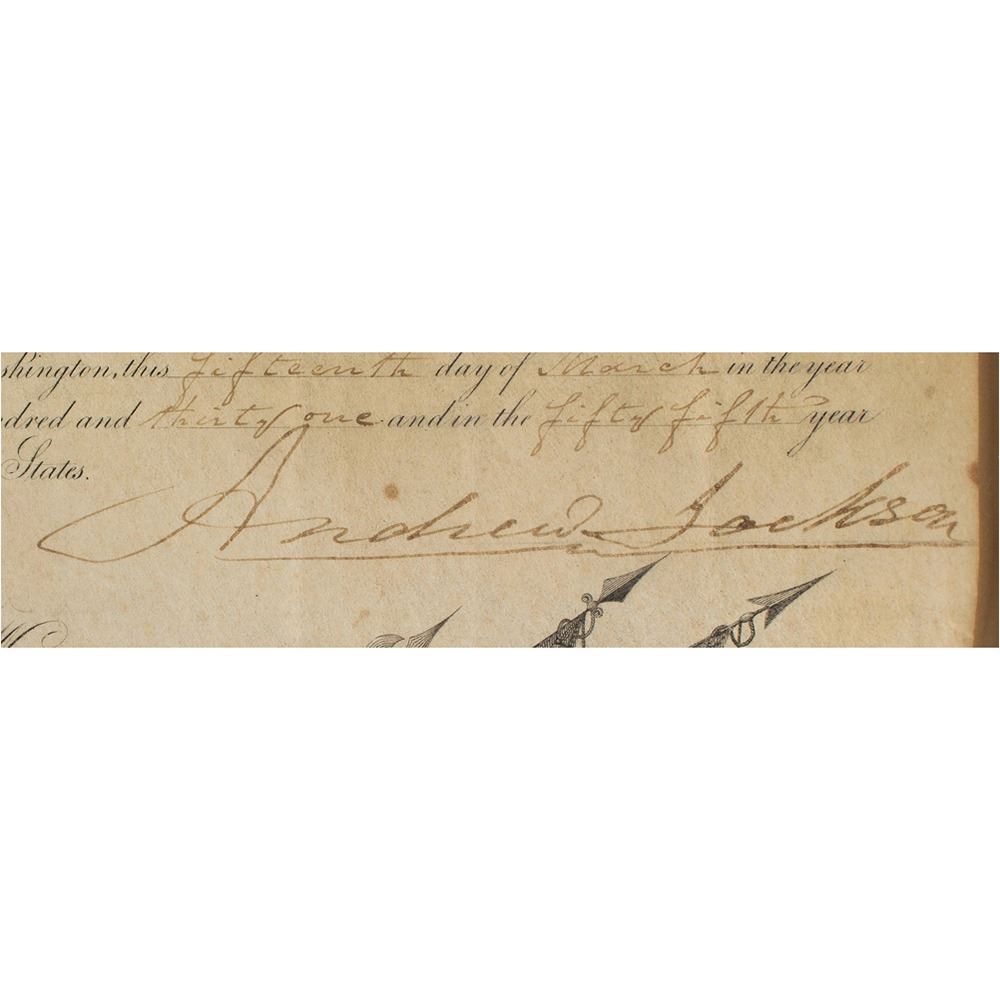 shington, this fifteenth day of March in the year
dred and thirty one and in the fifty fifth year
States.
Andrew Jackson